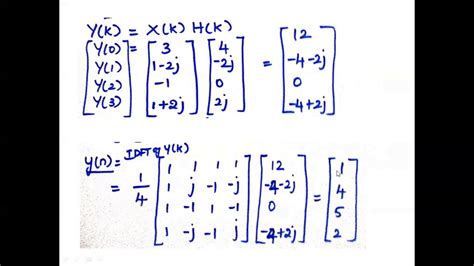 Y(k) = X(k) H(k)
[Y(0) Y(1) Y(2) Y(3)] = [3 1-2j -1 1+2j] [4 -2j 0 2j] = [12 -4-2j 0 -4+2j]
y(n) = IDFT of Y(k)
= 1/4 [1 1 1 1
1 j -1 -j
1 -1 1 -1
1 -j -1 j] [12 -4-2j 0 -4+2j] = [1 4 5 2]